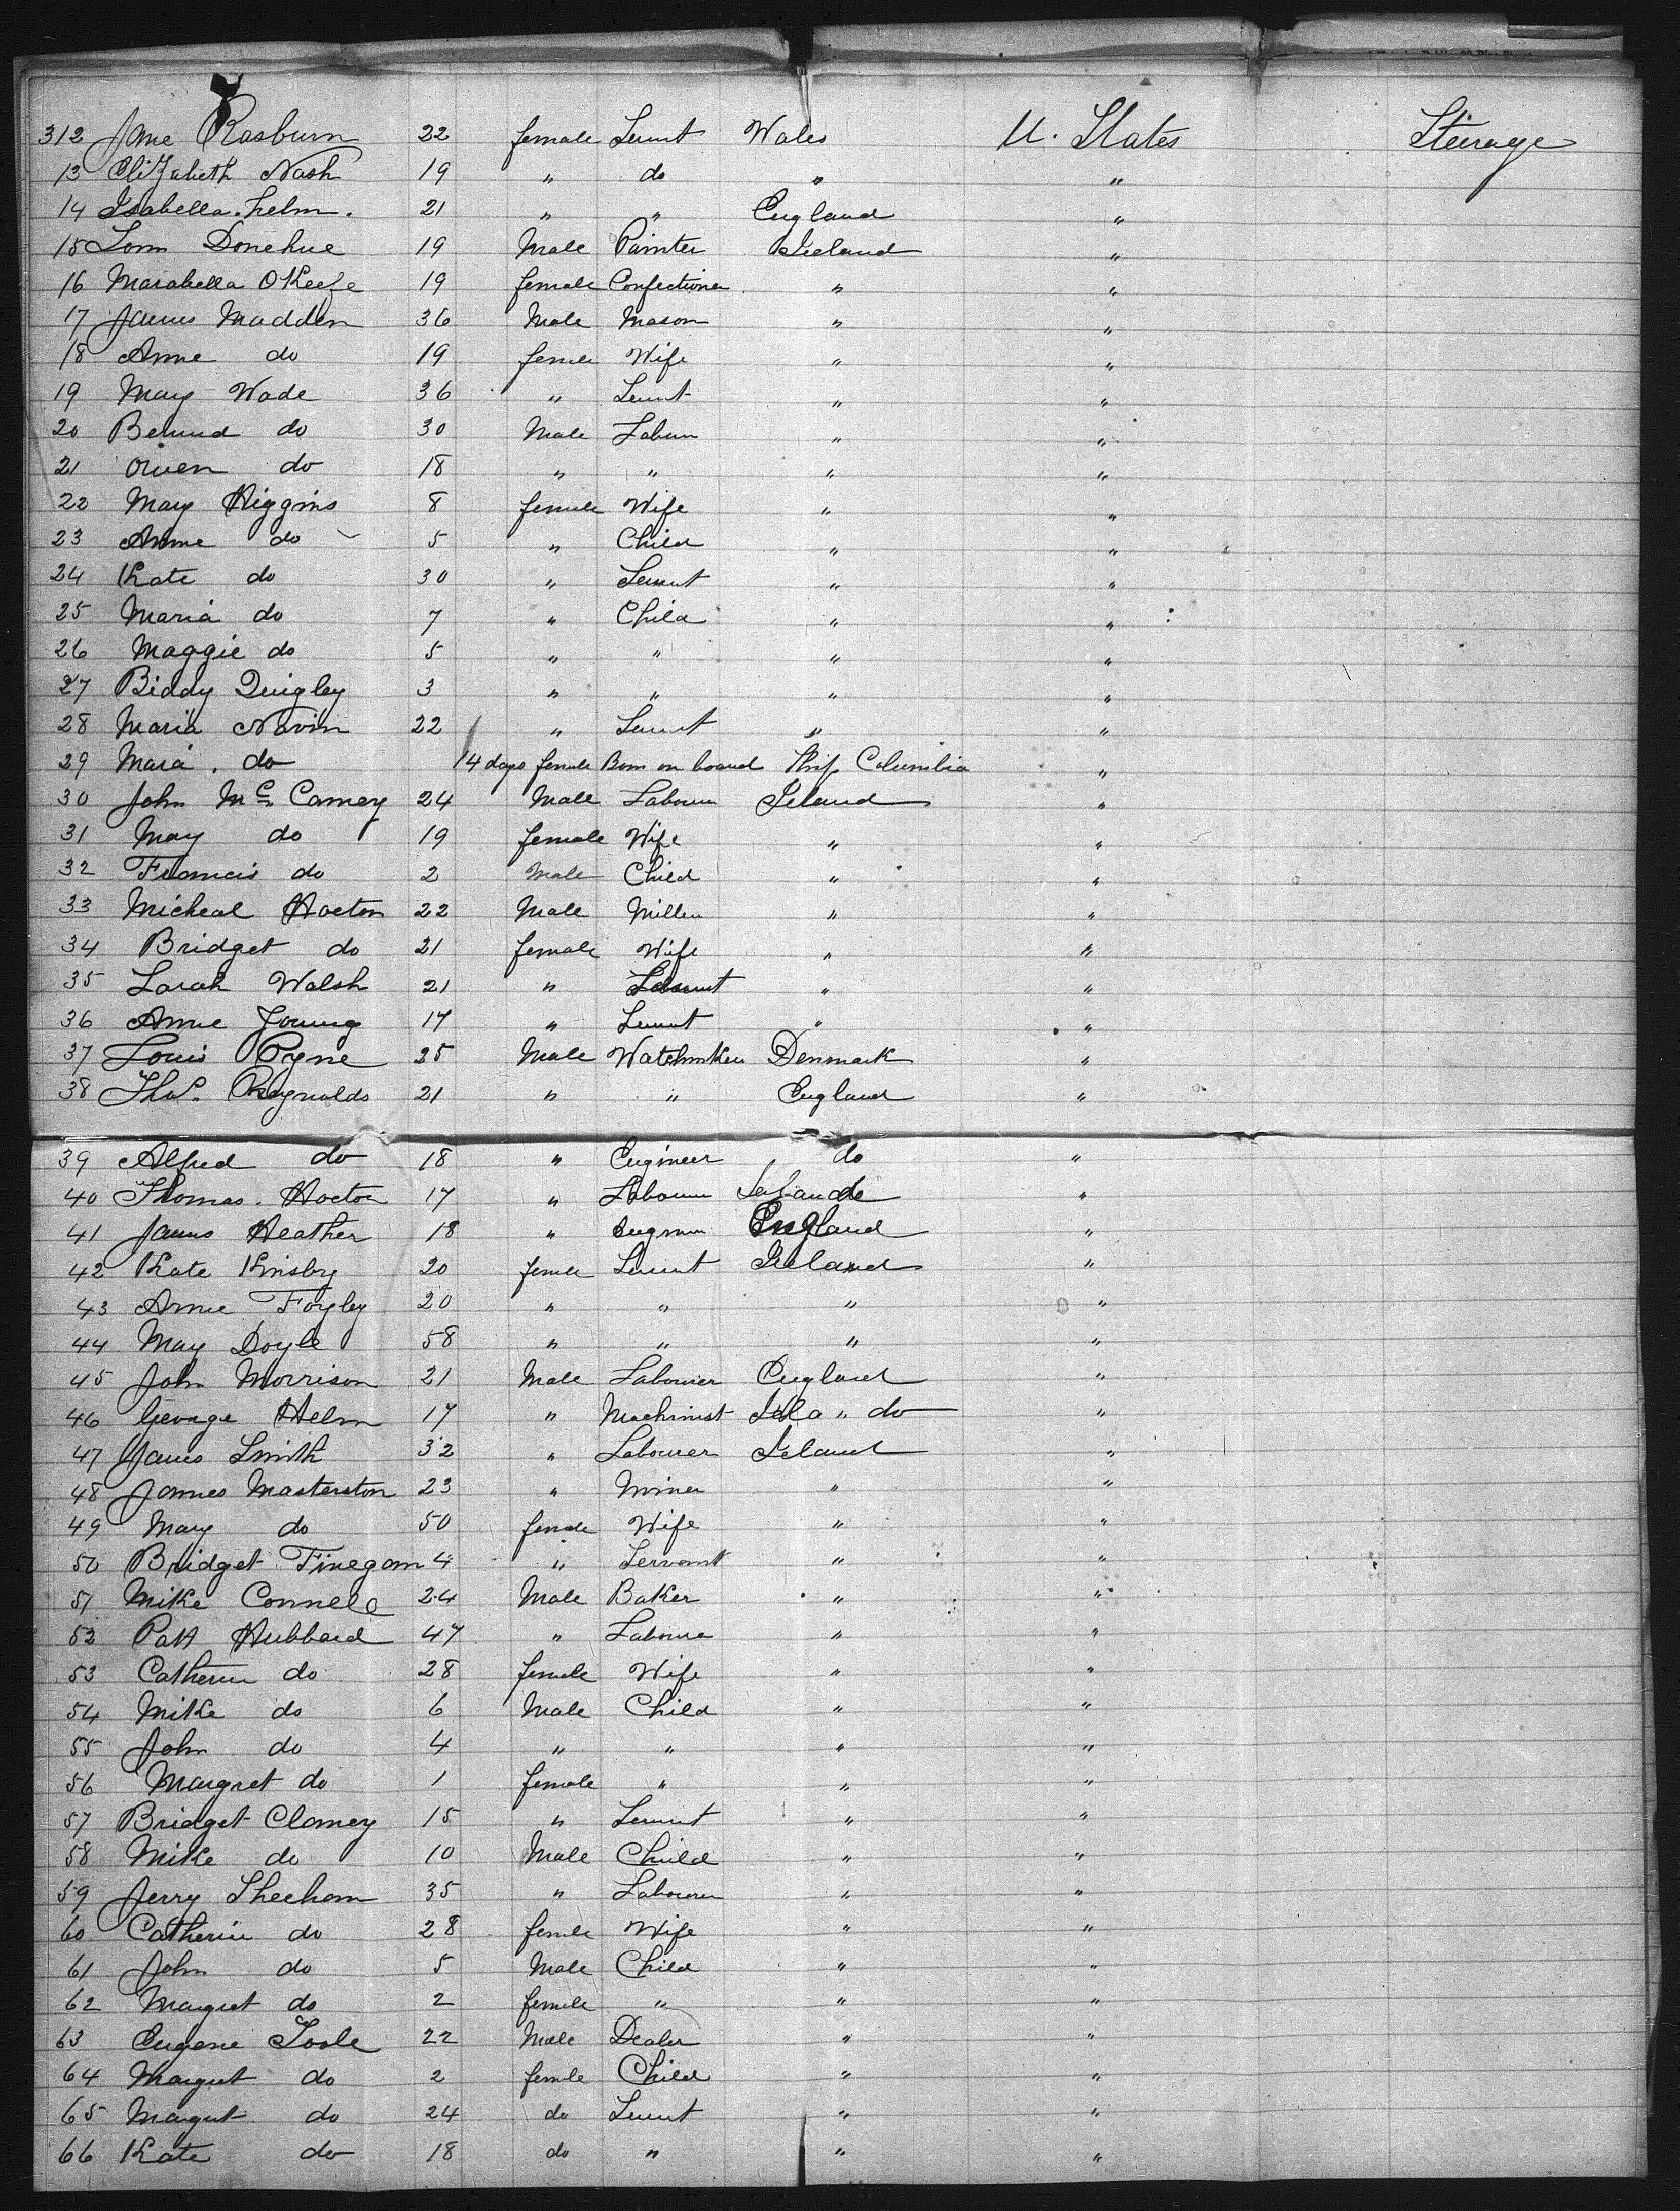 312 Jane Rasburn 22 female Servt Wales U. States Steerage
13 Elizabeth Nash 19 " do " "
14 Isabella Helm. 21 " " England "
15 Tom Donehue 19 Male Painter Ireland "
16 Marabella OKeefe 19 female Confectioner " "
17 James Madden 36 Male Mason " "
18 Anne do 19 female Wife " "
19 Mary Wade 36 " Servt " "
20 Bernard do 30 Male Labour " "
21 Owen do 18 " " " "
22 Mary Higgins 8 female Wife " "
23 Anne do 5 " Child " "
24 Kate do 30 " Servnt " "
25 Maria do 7 " Child " "
26 Maggie do 5 " " " "
27 Biddy Quigley 3 " " " "
28 Maria Navin 22 " Servnt " "
29 Maria. do 14 days female Born on board Ship Columbia "
30 John Mc Carney 24 Male Labourer Ireland "
31 Mary do 19 female Wife " "
32 Francis do 2 Male Child " "
33 Micheal Hoctor 22 Male Miller " "
34 Bridget do 21 female Wife " "
35 Sarah Walsh 21 " " "
36 Anne Young 17 " Servnt " "
37 Louis Pyne 25 Male Watchmker Denmark "
38 Thos. Reynolds 21 " " England "
39 Alfred do 18 " Engineer do "
40 Thomas. Hoctor 17 " Labourer "
41 James Heather 18 " England "
42 Kate Kinsby 20 female Servnt Ireland "
43 Anne Foyley 20 " " " "
44 Mary Doyle 58 " " " "
45 John Morrison 21 Male Labourer England "
46 George Helm 17 " Machinist do "
47 James Smith 32 " Labourer Ireland "
48 James Masterston 23 " Miner " "
49 Mary do 50 female Wife " "
50 Bridget Finegam 4 " Servant " "
51 Mike Connell 24 Male Baker " "
52 Patt Hubbard 47 " Laboure " "
53 Catherine do 28 female Wife " "
54 Mike do 6 Male Child " "
55 John do 4 " " " "
56 Margret do 1 female " " "
57 Bridget Clancy 15 " Servnt " "
58 Mike do 10 Male Child " "
59 Jerry Sheehan 35 " Labourer " "
60 Catherine do 28 female Wife " "
61 John do 5 Male Child " "
62 Margret do 2 female " " "
63 Eugene Toole 22 Male Dealer " "
64 Margret do 2 female Child " "
65 Margret do 24 do Servnt " "
66 Kate do 18 do " " "